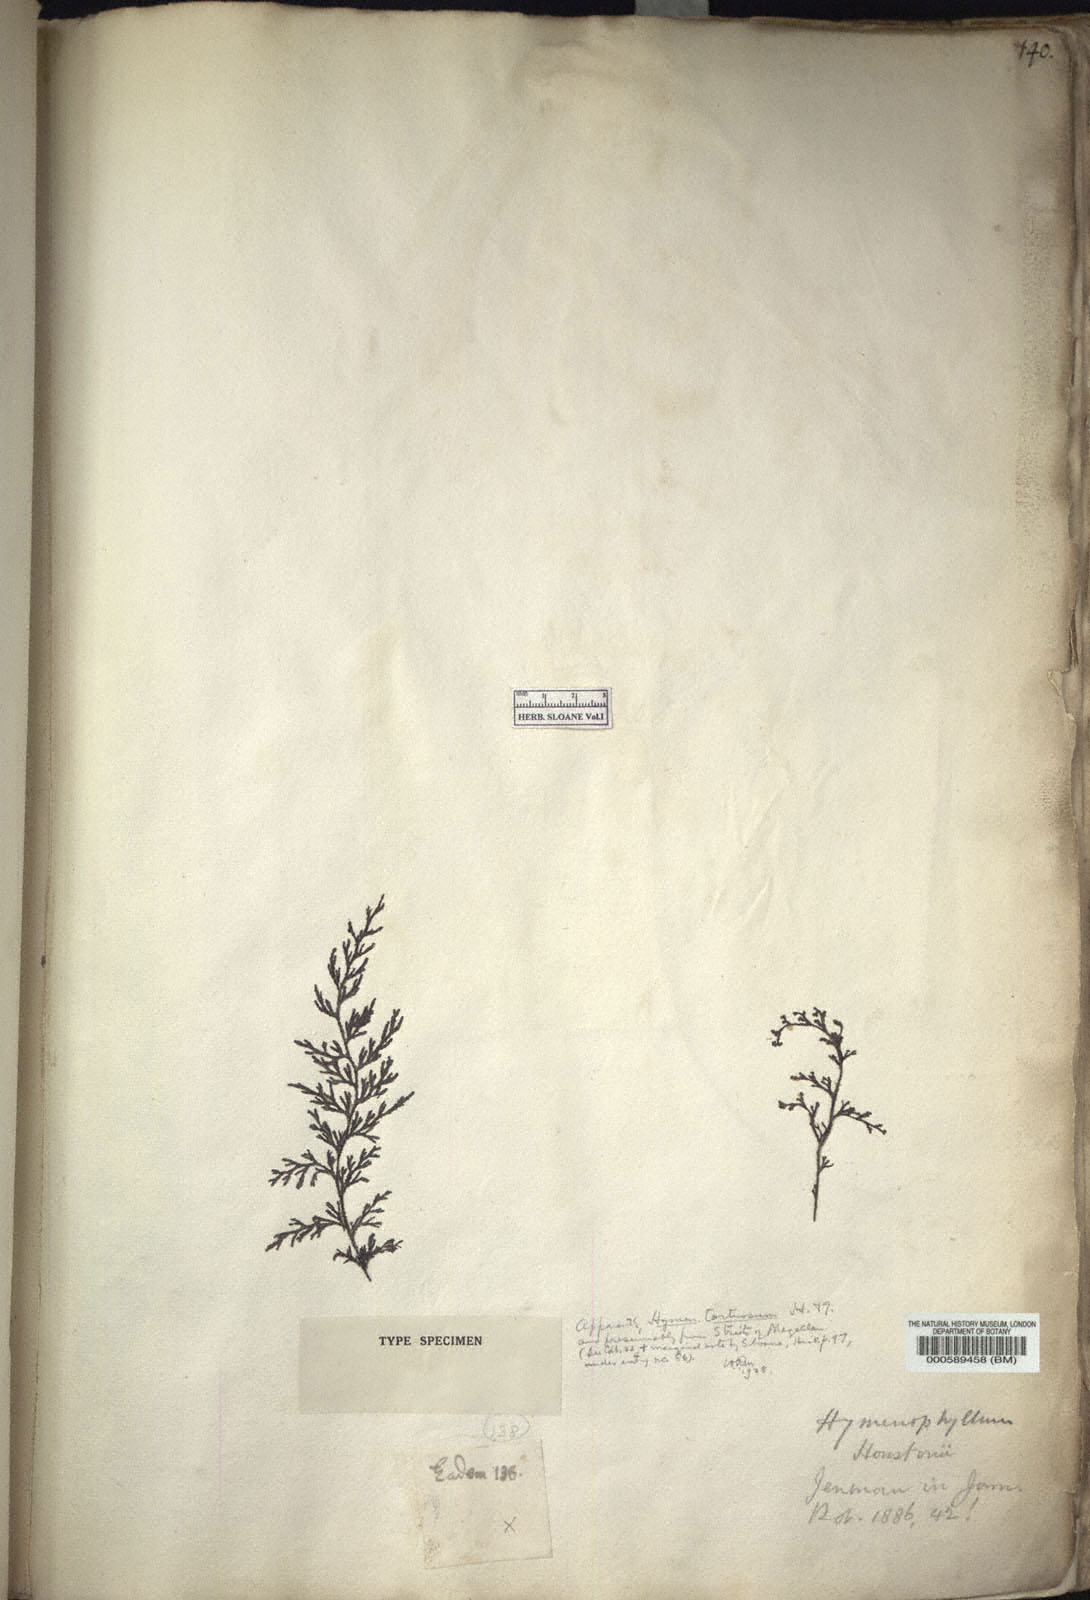 140.
1 2 3
HERB. SLOANE Vol.1
TYPE SPECIMEN
Hymen. tortuosum
and presumably from Straits of Magellan
+ marginal note by Sloane, p. 97,
under entry no.
THE NATURAL HISTORY MUSEUM, LONDON
DEPARTMENT OF BOTANY
000589458 (BM)
(138)
Eadem 136.
X
Hymenophyllum
Houstonii
Jenman in Journ.
Bot. 1886, 42!